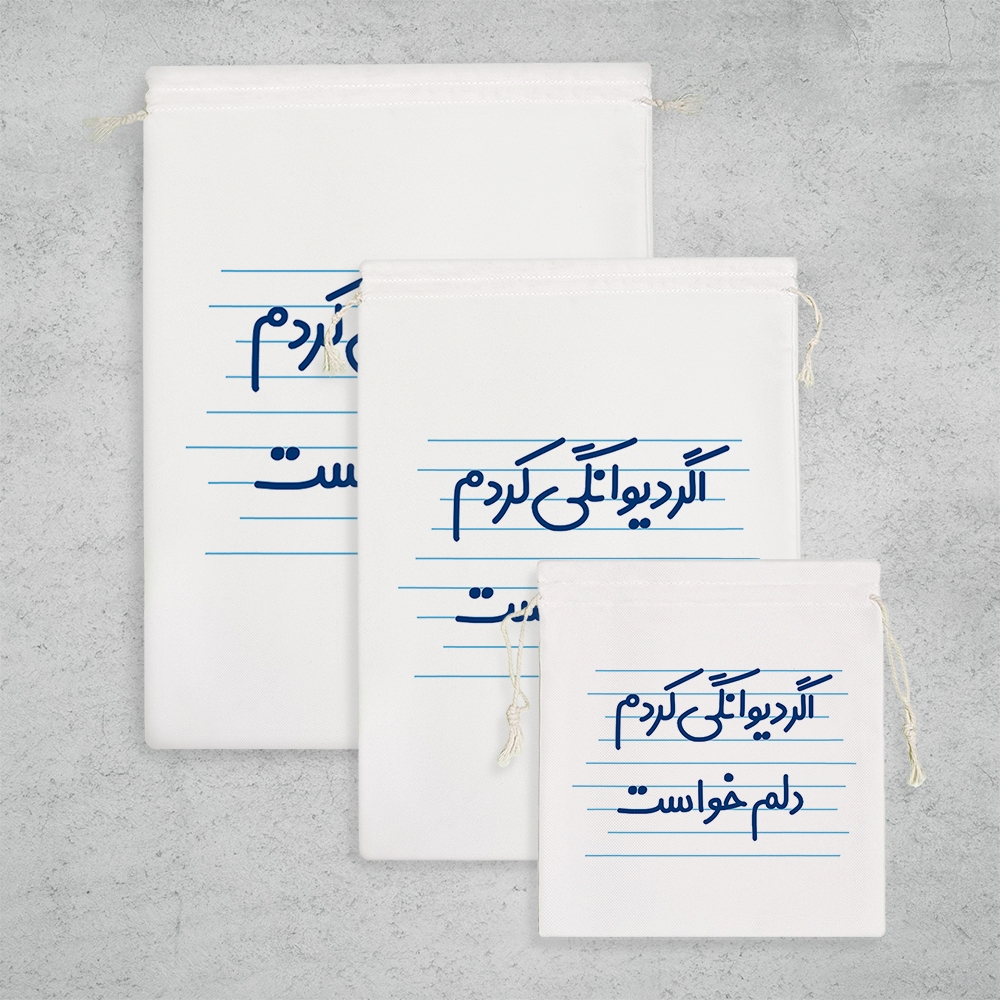 کردم
اگر دیوانگی کردم
اگر دیوانگی کردم
دلم خواست